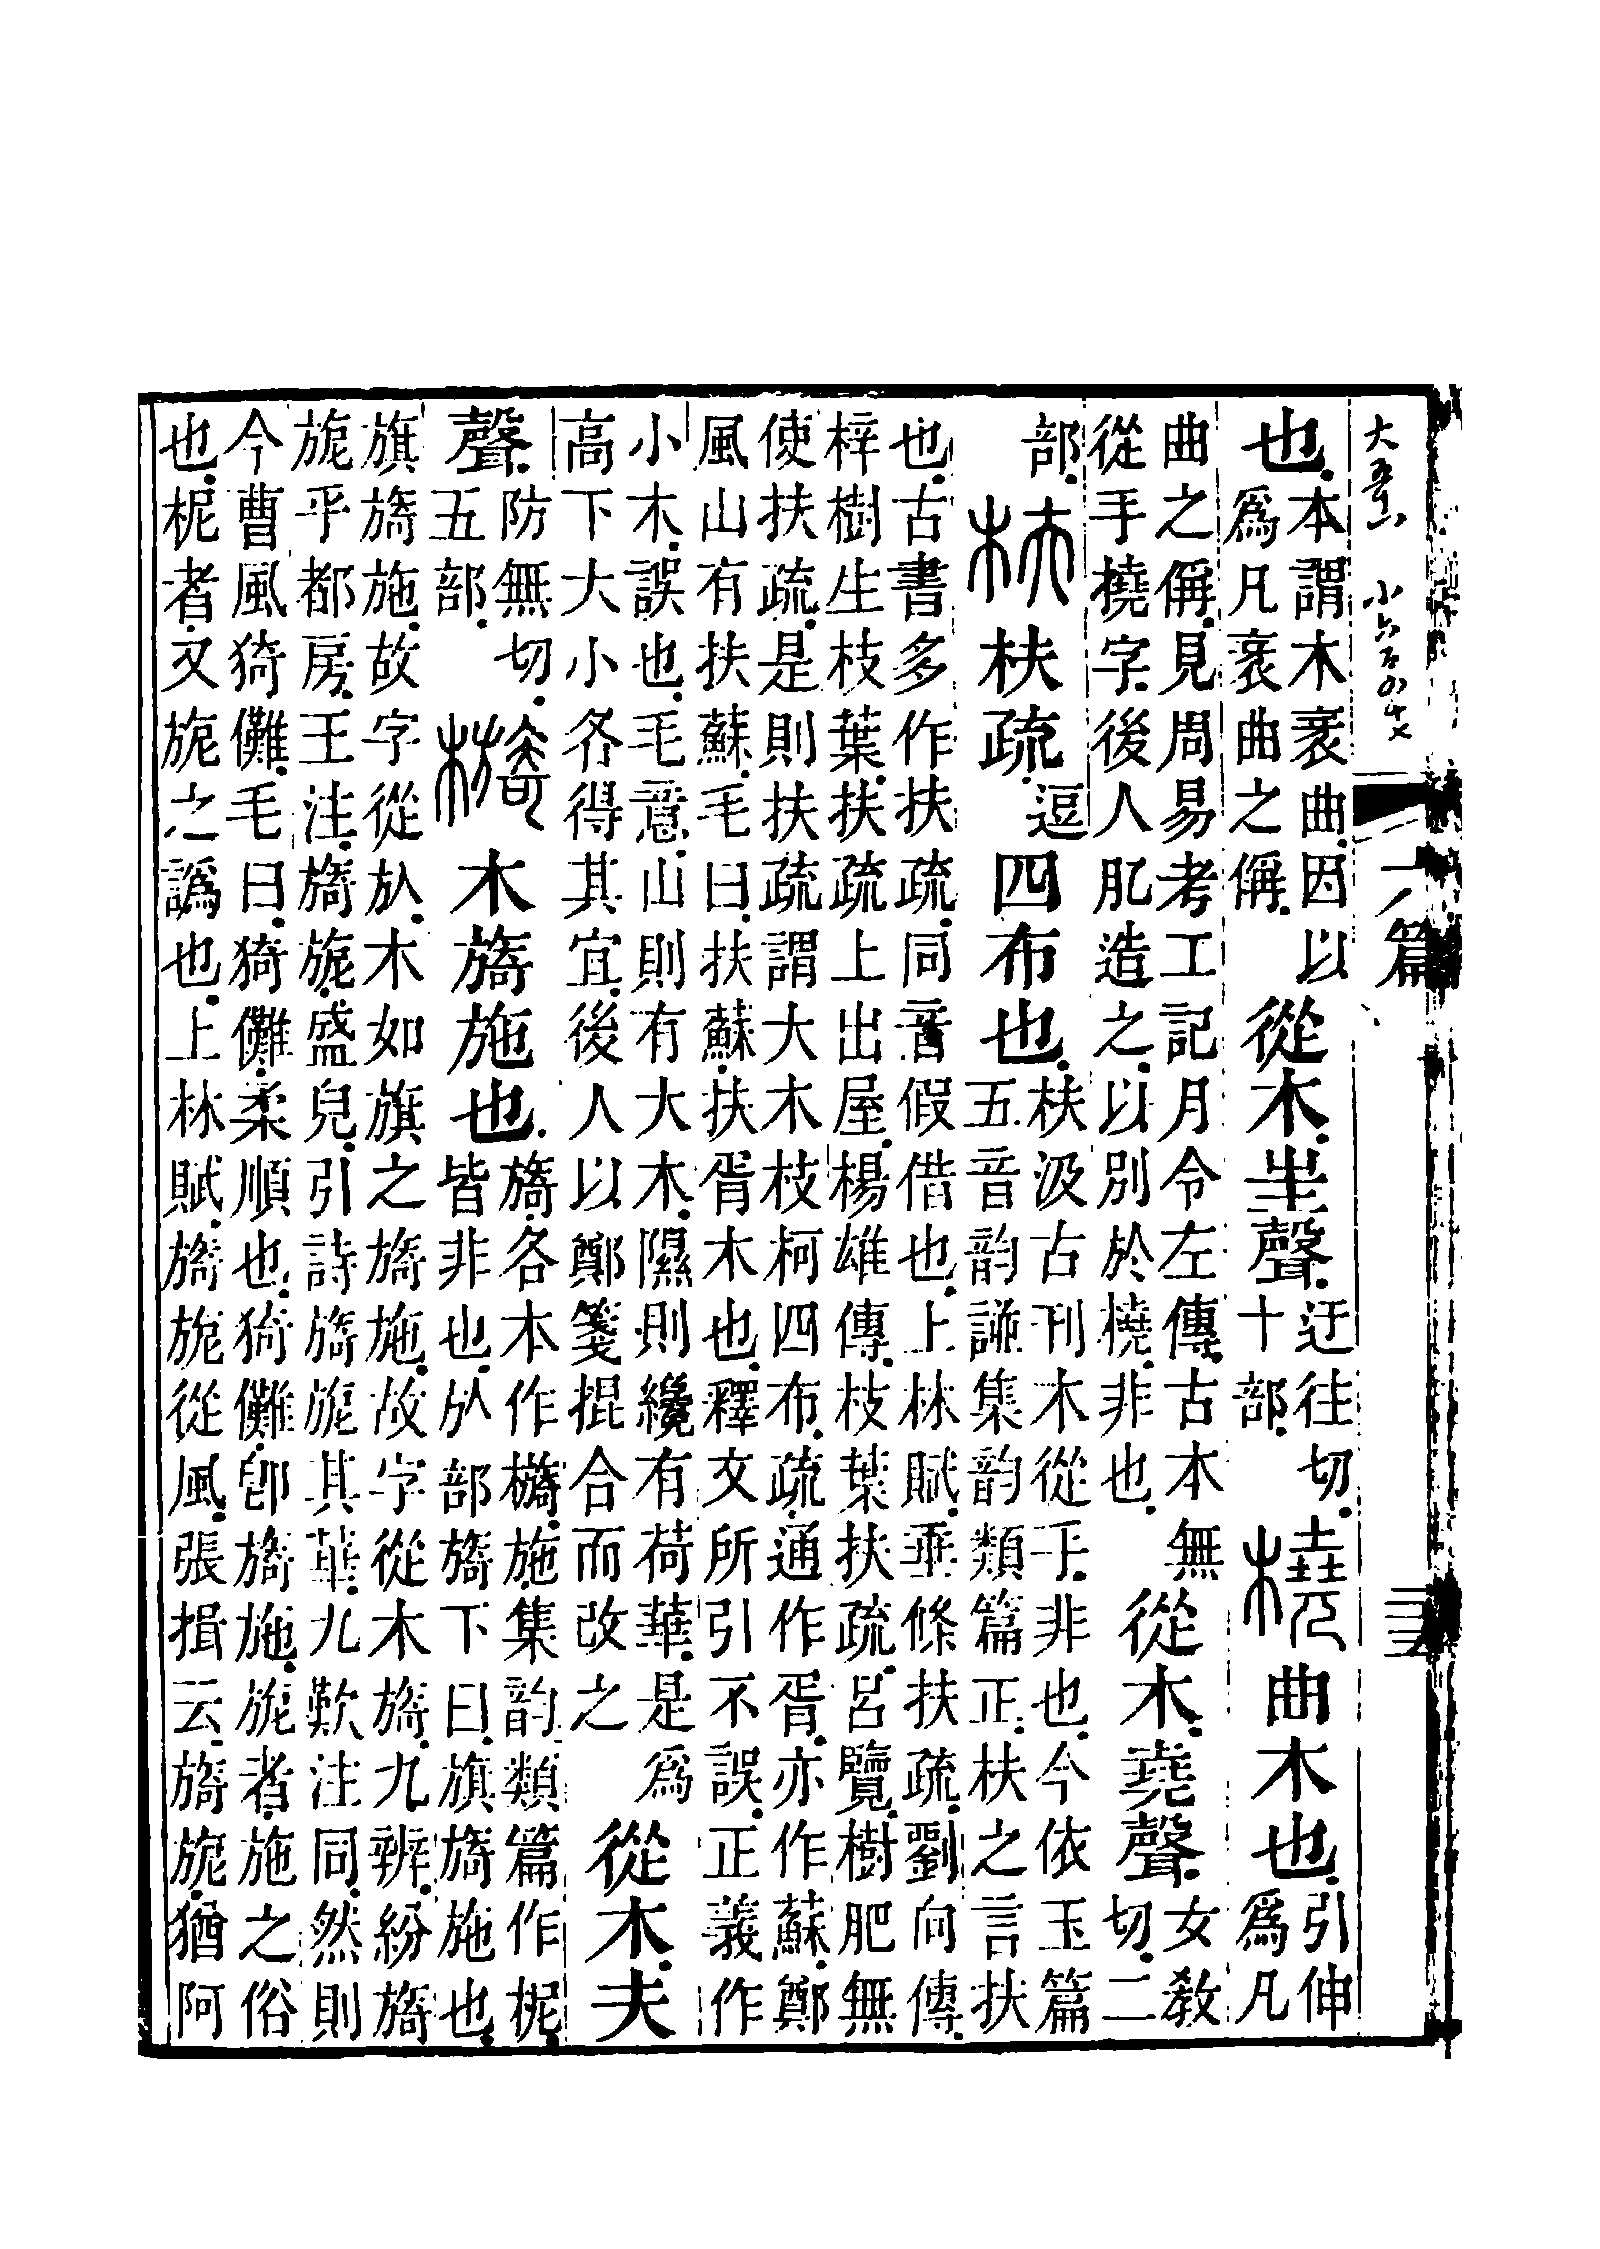 六篇
也本謂木衺曲因以
爲凡衺曲之偁從木㞷聲迂往切
十部橈曲木也引伸
爲凡
曲之偁見周易考工記月令左傳古本無
從手撓字後人肊造之以別於橈非也從木堯聲女敎
切二
部枎枎疏逗四布也枎汲古刊木從手非也今依玉篇
五音韵譜集韵類篇正枎之言扶
也古書多作扶疏同音假借也上林賦垂條扶疏劉向傳
梓樹生枝葉扶疏上出屋楊雄傳枝葉扶疏呂覽樹肥無
使扶疏是則扶疏謂大木枝柯四布疏通作胥亦作蘇鄭
風山有扶蘇毛曰扶蘇扶胥木也釋文所引不誤正義作
小木誤也毛意山則有大木隰則纔有荷華是爲
高下大小各得其宜後人以鄭箋掍合而改之從木夫
聲防無切
五部檹木旖施也旖各本作檹施集韵類篇作柅
皆非也㫃部旖下曰旗旖施也
旗旖施故字從㫃木如旗之旖施故字從木旖九辨紛旖
旎乎都房王注旖旎盛皃引詩旖旎其華九歎注同然則
今曹風猗儺毛曰猗儺柔順也猗儺卽旖施旎者施之俗
也柅者又旎之譌也上林賦旖旎從風張揖云旖旎猶阿